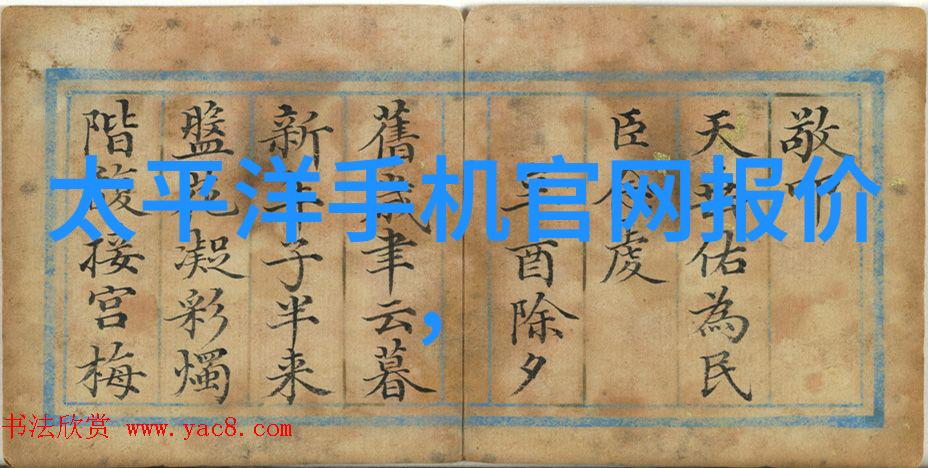 太平洋手机官网报价
,
敬叩
天佑為民
臣虔
酉除夕
舊歲聿云暮
新年子半来
盤花凝彩燭
階接宮梅
书法欣赏 www.yac8.com